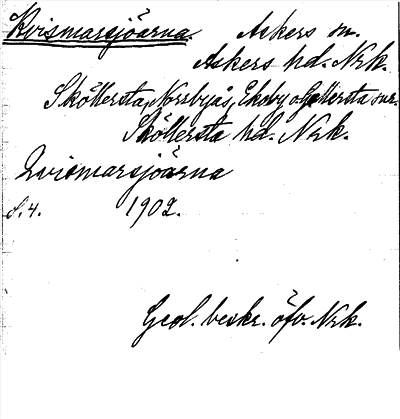 Kvismarsjöarna. Askers sn.
Askers hd. Nrk.
Sköllersta, Norrbyås, Ekeby o Gällersta snr.
Sköllersta hd. Nrk.
Qvismarsjöarna
S. 4. 1902.
Geol. beskr. öfv. Nrk.